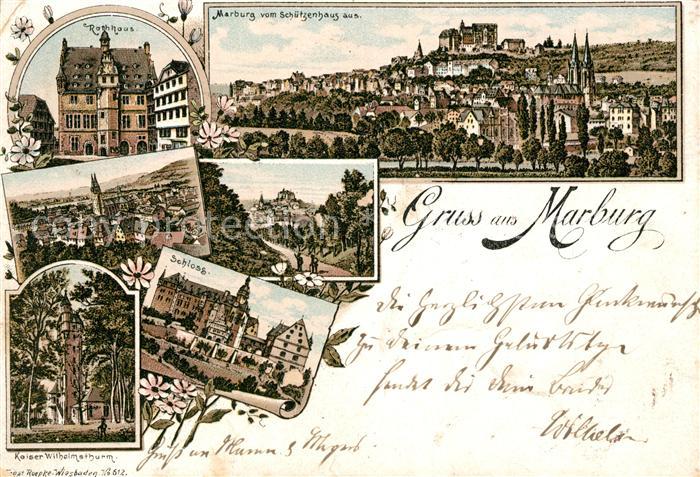 Rathhaus.
Marburg vom Schützenhaus aus.
Gruss aus Marburg
Schloss.
Die herzlichsten Glückwünsche
zu Deinem Geburtstage
sendet Dir Dein Bruder
Wilhelm
Gruß an Mama &
Kaiser Wilhelmsthurm.
Wiesbaden. No 612.